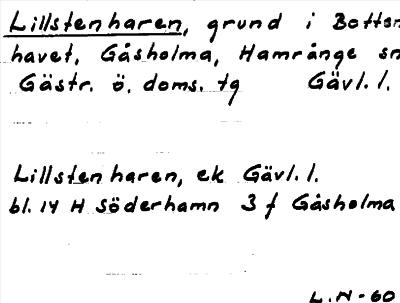 Lillstenharen, grund i Bottn
havet, Gåsholma, Hamrånge sn
Gästr. ö. doms. tg Gävl. l.
Lillstenharen, ek Gävl. l.
bl. 14 H Söderhamn 3 f Gåsholma
L.N-60